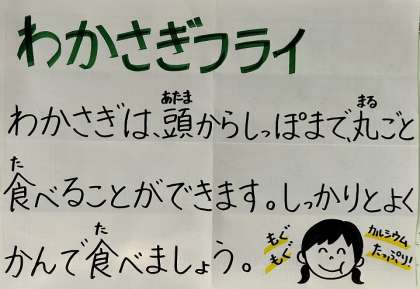 わかさぎフライ
あたま まる
わかさぎは、頭からしっぽまで、丸ごと
た
食べることができます。しっかりとよく
た
かんで食べましょう。
もぐ
もぐ
カルシウム
たっぷり!